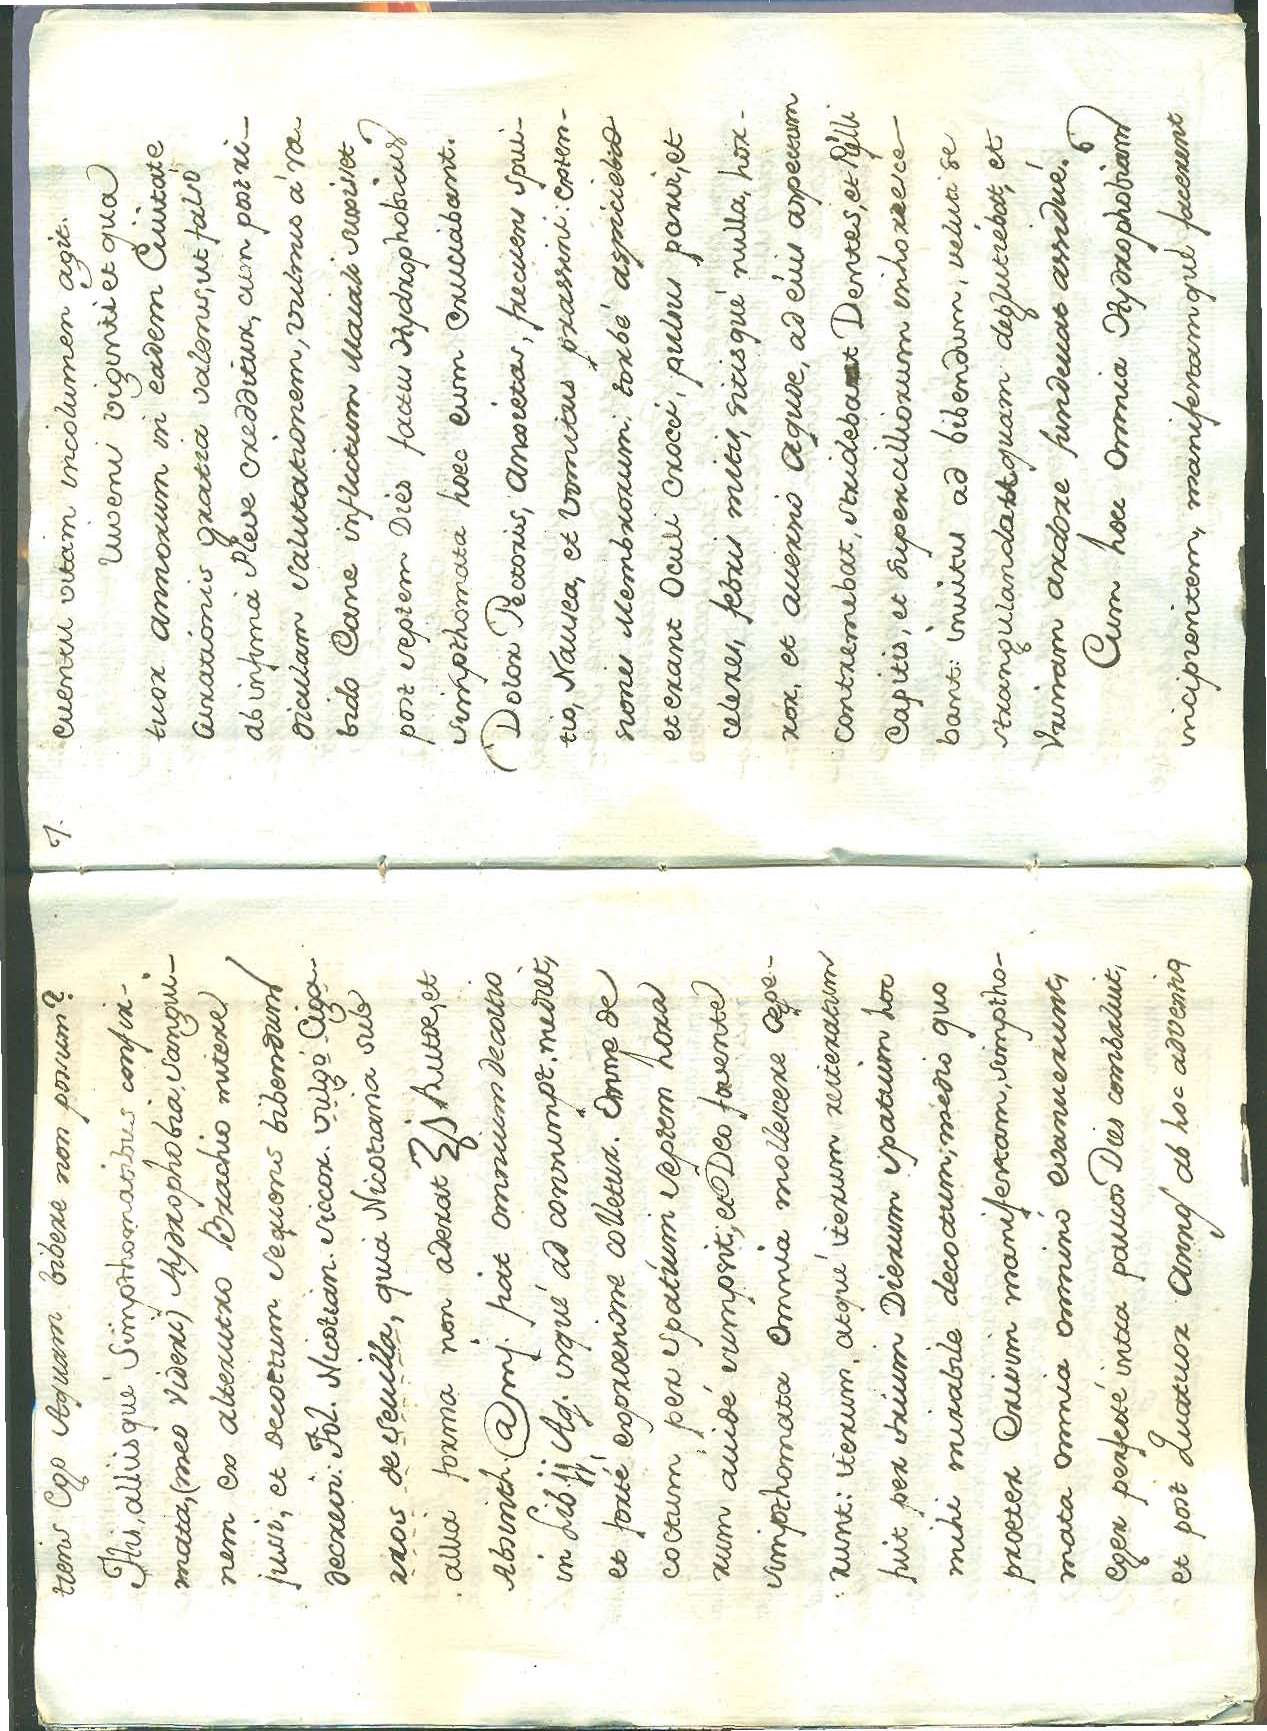 tiens Ego Aquam bibere non possum?
His, alliisque simpthomatibus confir-
mata, (meo videri) Hydrophobia, sangui-
nem ex alterutro Brachio mitere
jussi, et decoctum sequens bibendum
decrevi: Fol. Nicotian. siccor. vulgò Ciga-
rros de sevilla, quia Nicotiana sub
alia forma non aderat ℥j Rutæ, et
Absinth. @ mj fiat omnium decoctio
in Lib. jj Aq. usque ad consumpt. mediet,
et forté expraesione colletur. Omne de
coctum per spatium septem hora
rum auidé sumpsit; et Deo favente
simpthomata omnia mollescere cæpe-
runt: iterum, atqué iterum reiteratum
fuit per trium Dierum spatium hoc
mihi mirabile decoctum; medio quo
praeter Crisim manifestam, simptho-
mata omnia omninó evanuerunt,
Eger perfecté intra paucos Dies combaluit,
et post quatuor Annos ab hoc adverso
7.
eventu vitam incolumen agit.
Iuveni viginti et qua
tuor annorum in eadem Civitate
curationis gratia valenus, ut falsò
ab infima Pleve creditur, cum post ri-
diculam salutationem, vulnus á ra
bido Cane inflictum Maxili suscisset
post septem Dies factus Hydrophobicus
simpthomata hæc eum cruciabant.
Dolor Pectoris, Anxietas, frecuens spui-
tio, Nausea, et Vomitus prassini: exten-
siones Membrorum: torbé aspiciebat
et erant Oculi crocei, pulsus parvi, et
celeres, febris mitis, sitisqué nulla, hor-
ror, et auersio Aquæ, ad eius aspectum
contremebat, stridebant Dentes, et Pilli
Capitis, et Supercilliorum inhorresce
bant: invitus ad bibendum, velut a se
strangulandat quam deglutiebat, et
Urinam ardore fundebat assidué.
Cum hæc omnia Hydrophobiam
incipientem, manifestamqué facerent